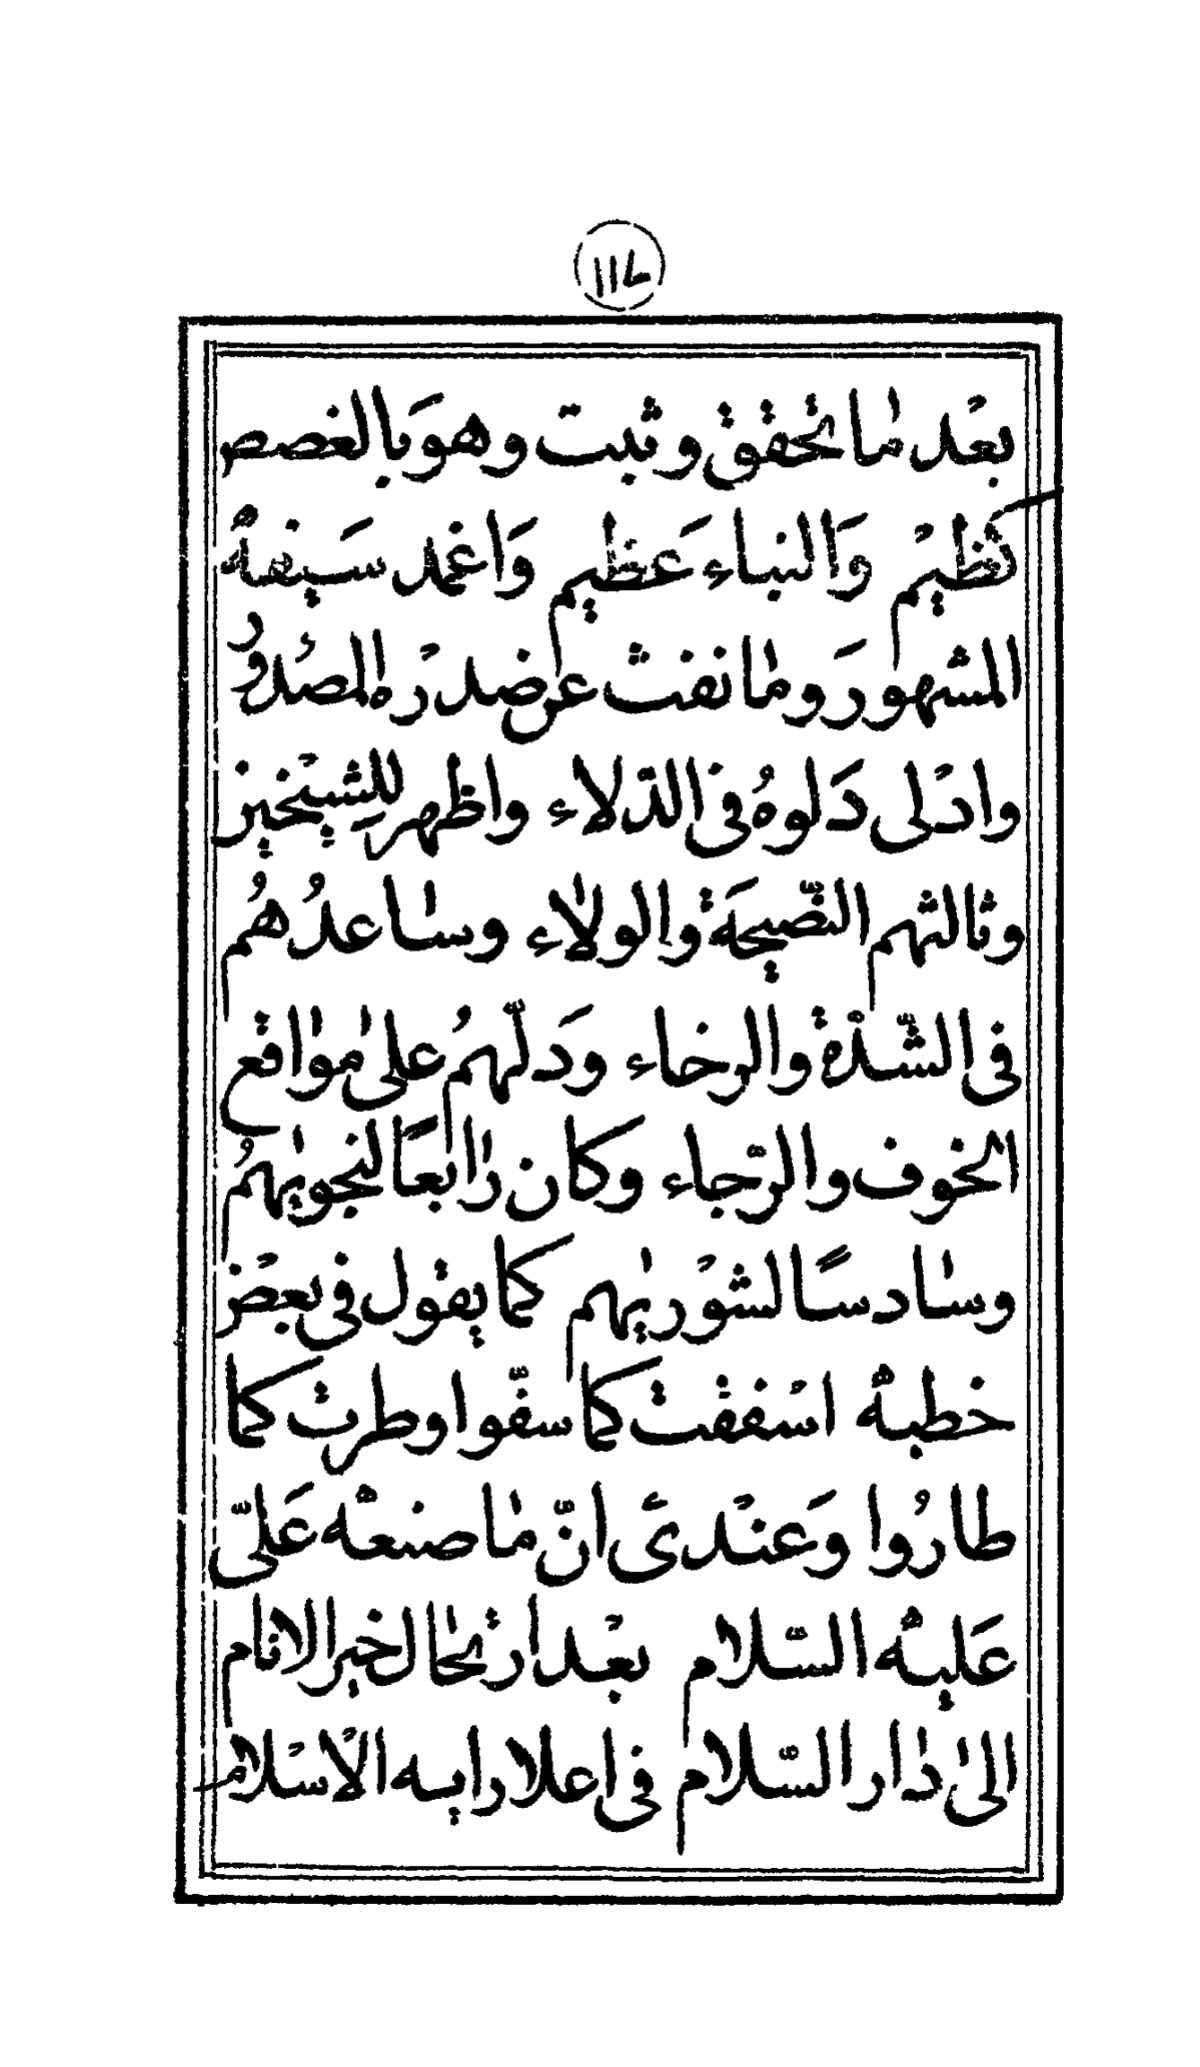 ١١٢
بعْد مٰا تحقق و ثبت و هوَ بالغصص
نظيمْ وَالنباء عَظيم وَاغمد سَيفهُ
المشهورَ و مٰا نفث عن صدره المصدُور
و ادْلى دَلوهُ فى الدّلاء و اظهر للشيْخين
و ثالثهم النّصيحَة و الولاء و سٰاعدُهُم
فى الشّدْة و الرخاء و دَلّهمُ علىٰ موٰاقع
الخوف و الرّجاء و كان رٰابعًا لنجويٰهمُ
و سٰادسًا لشوْريٰهم كما يقول فى بعضْ
خطبهُ اسْففْت كما سفّوا و طرت كما
طارُوا وَ عنْدىَ انّ مٰا صنعهُ عَلىّ
عَليهُ السّلام بعْد ارتحٰال خير الانام
الىٰ دٰار السّلام فى اعلا راٮيه الْاسْلام